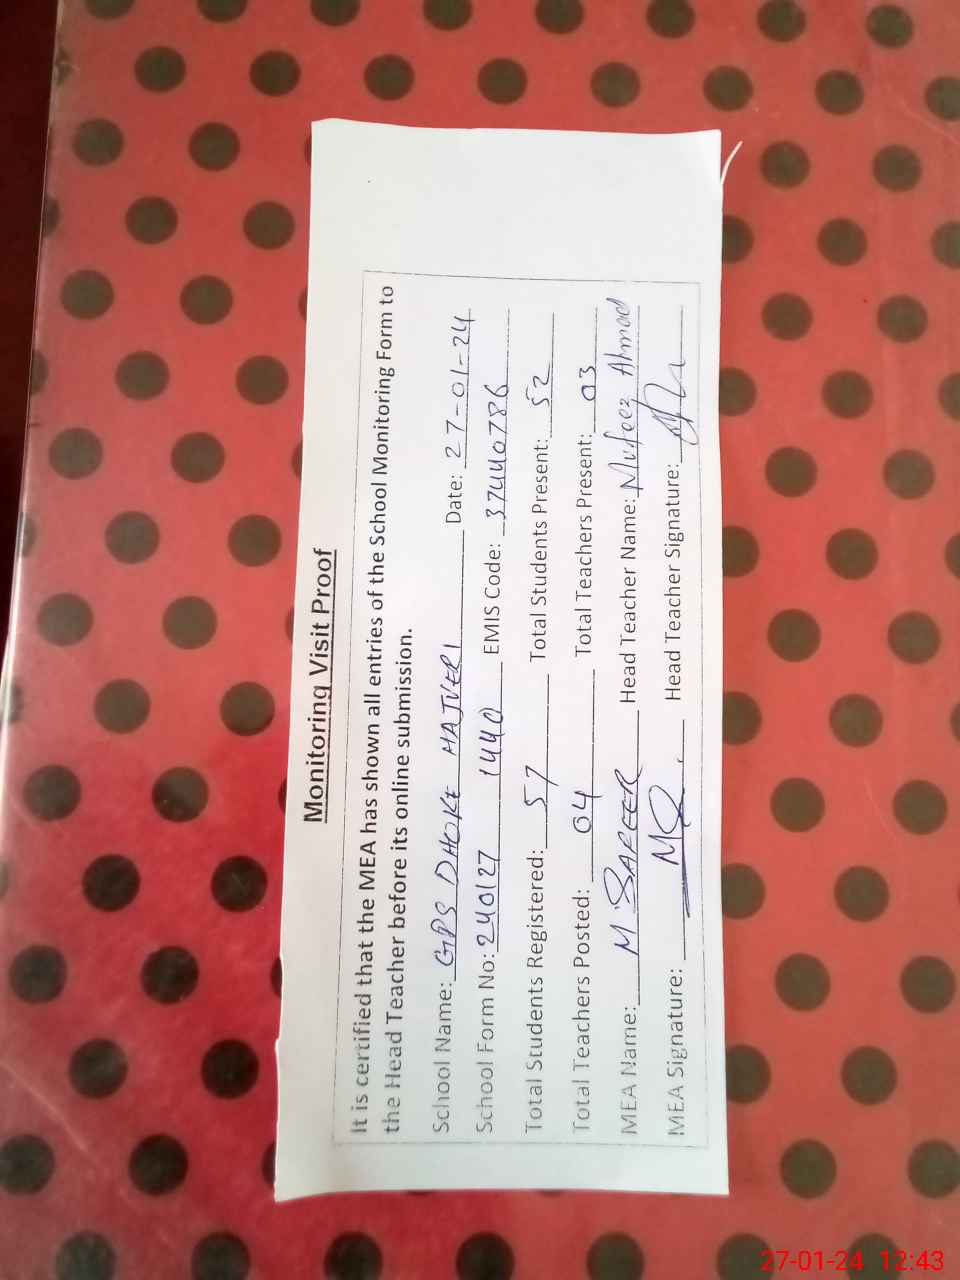 Monitoring Visit Proof
It is certified that the MEA has shown all entries of the School Monitoring Form to
the Head Teacher before its online submission.
School Name: GPS DHOKE HAJVERI Date: 27-01-24
School Form No: 240127 1440 EMIS Code: 37440786
Total Students Registered: 57 Total Students Present: 52
Total Teachers Posted: 04 Total Teachers Present: 03
MEA Name: M Head Teacher Name: Ahmad
MEA Signature: Head Teacher Signature:
27-01-24 12:43